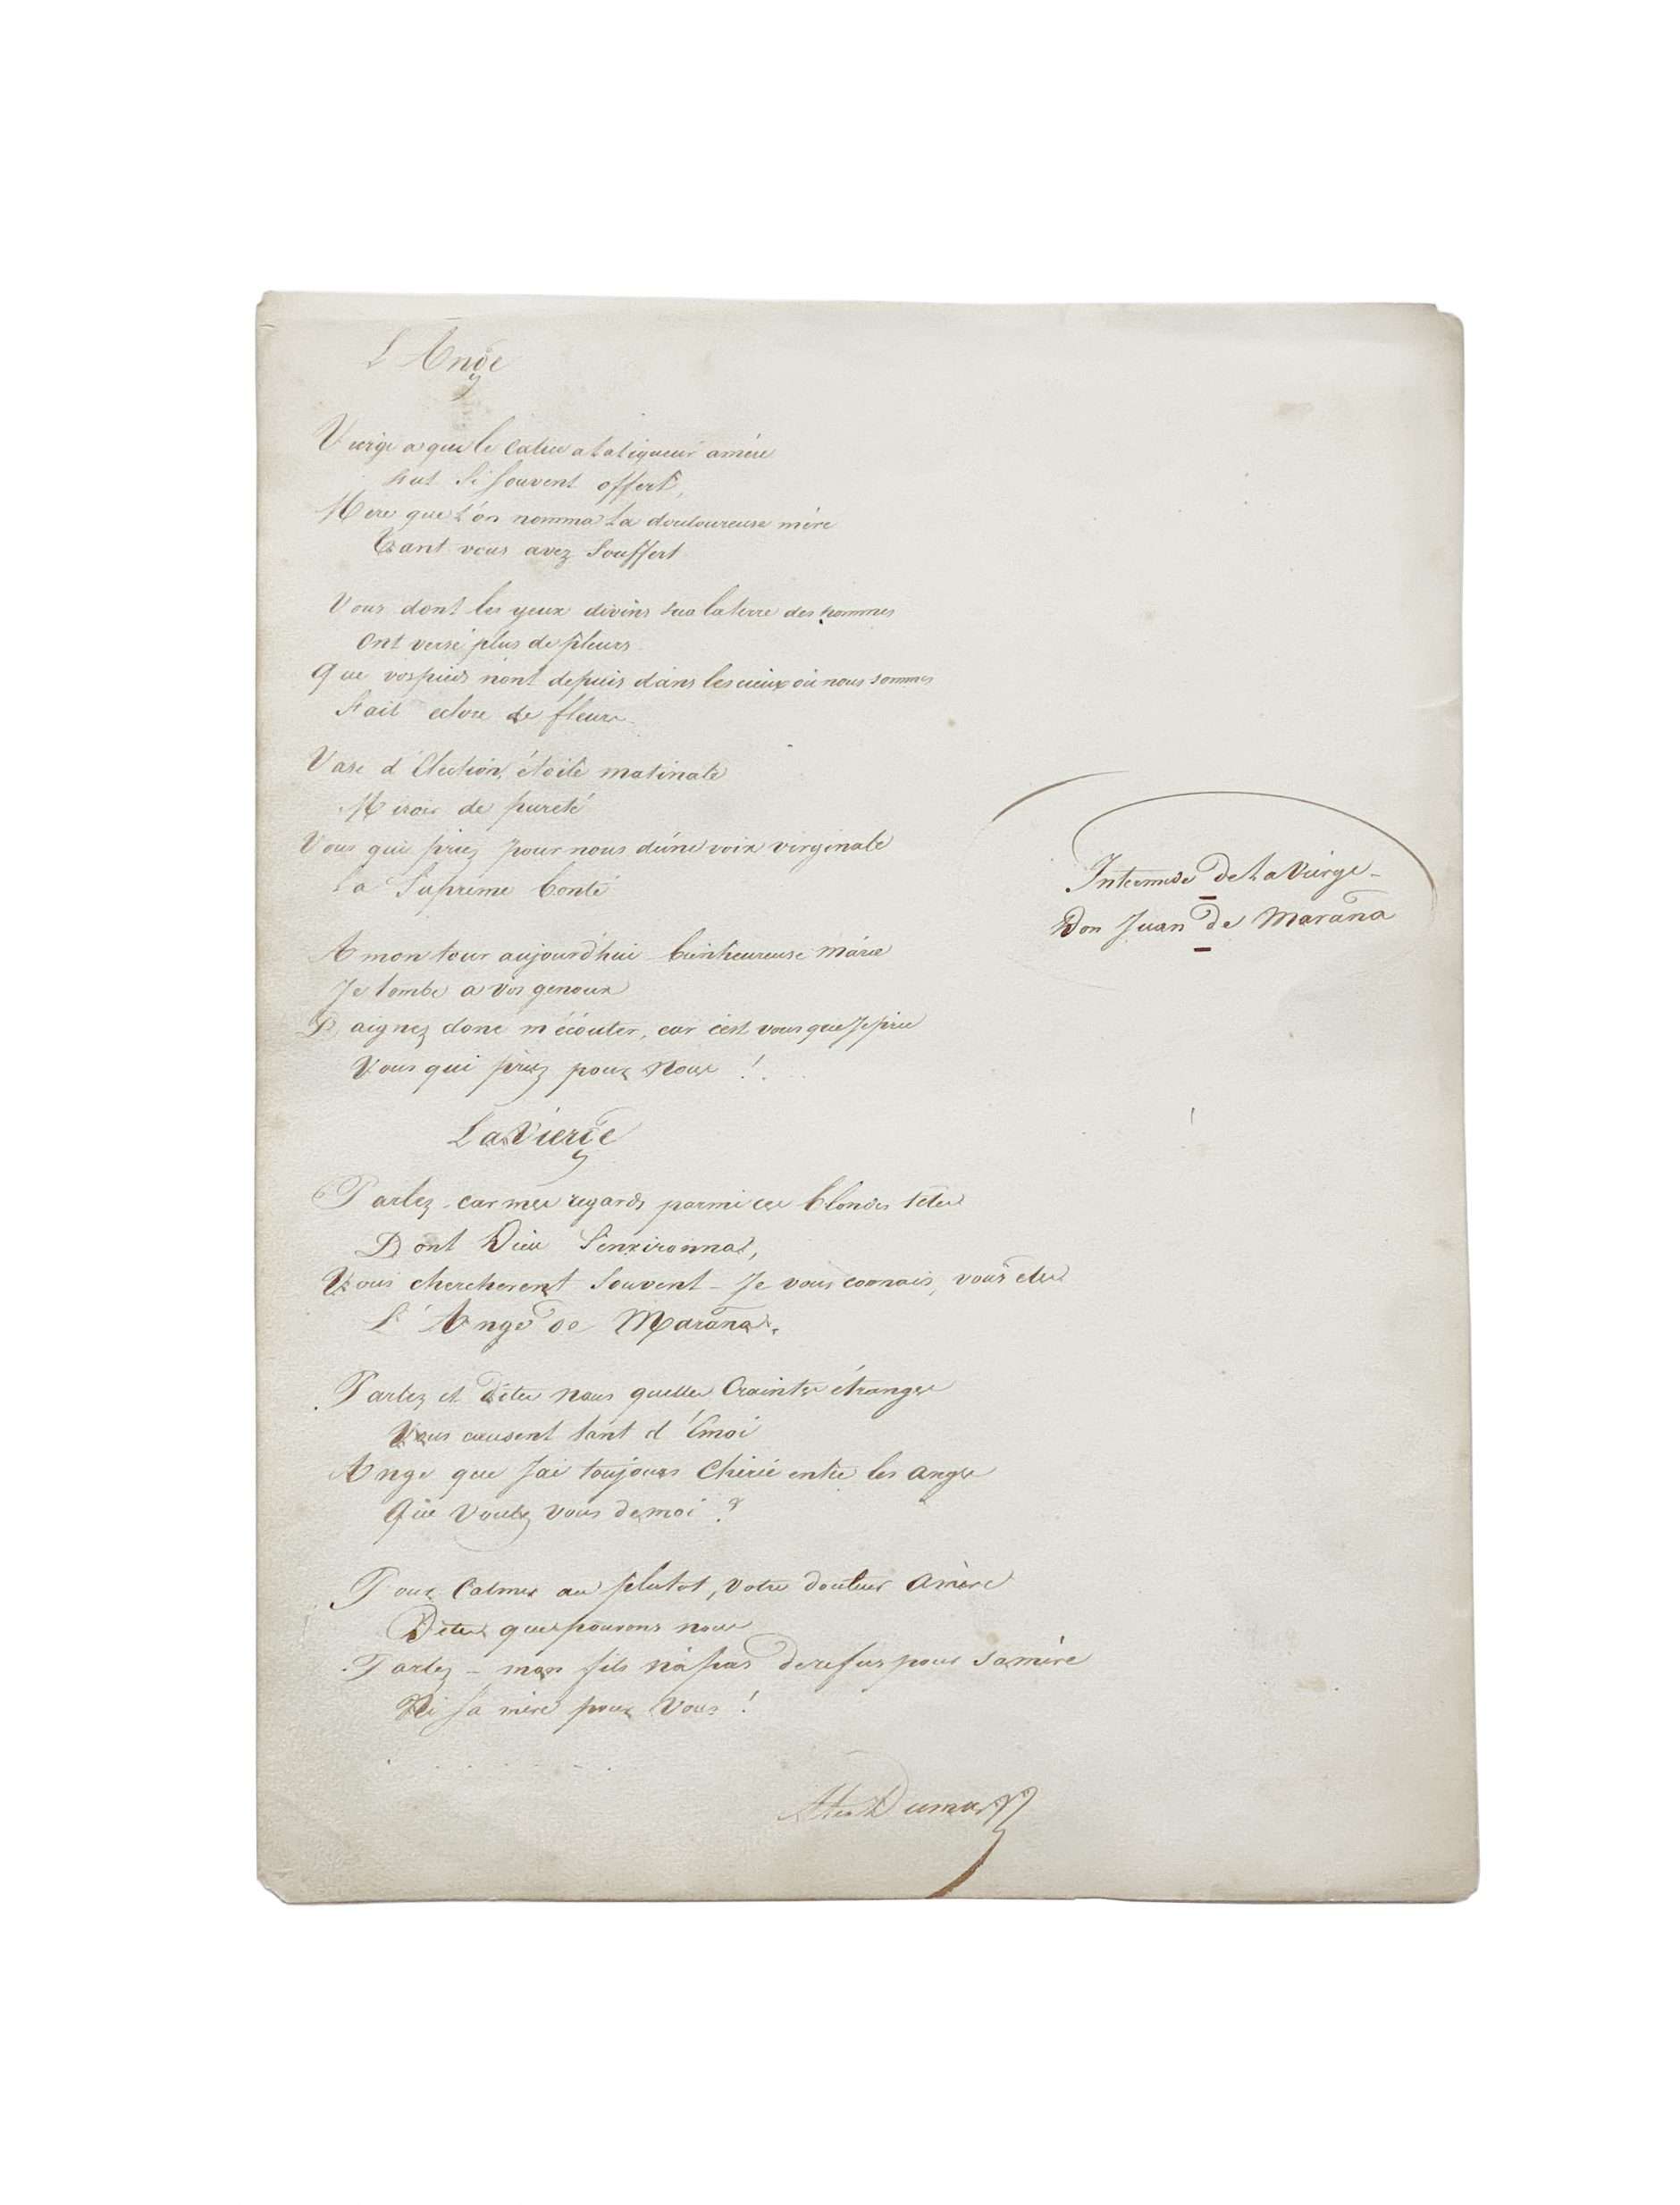 L'Ange
Vierge a qui le calice a la liqueur amère
Fut si souvent offert,
Mere que l'on nomma la douloureuse mère
Tant vous avez souffert
Vous dont les yeux divins sur la terre des hommes
Ont versé plus de pleurs
Que vos pieds n'ont depuis dans les cieux où nous sommes
Fait eclore de fleurs
Vase d'Election, étoile matinale
Miroir de pureté
Vous qui priez pour nous d'une voix virginale
La Suprème bonté
A mon tour aujourd'hui bienheureuse Marie
Je tombe a vos genoux
Daignez donc m'écouter, car c'est vous que je prie
Vous qui priez pour nous !...
Intermede de la Vierge -
Don Juan de Marãna
La Vierge
Parlez - car mes regards parmi ces blondes têtes
Dont Dieu s'environna,
Vous chercherent souvent - Je vous connais, vous etes
L'Ange de Marãna.
Parlez et dites nous quelles craintes étranges
Vous causent tant d'Émoi
Ange que j'ai toujours chérie entre les anges
Que voulez vous de moi ?
Pour calmer au plutot, votre douleur amère
Dites que pouvons nous
Parlez - mon fils n'a pas de refus pour sa mère
Ni sa mère pour vous !
. . . . . . .
Alex Dumas